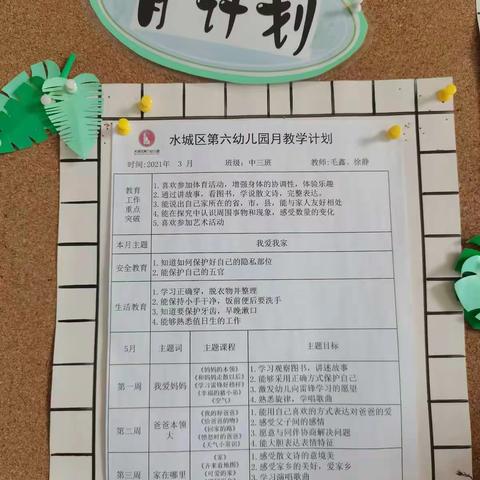 月计划
水城区第六幼儿园
水城区第六幼儿园月教学计划
时间:2021年 3 月 班级: 中三班 教师: 毛鑫、徐静
教育工作重点突破
1.喜欢参加体育活动，增强身体的协调性，体验乐趣
2.通过讲故事，看图书，学说散文诗，完整表达。
3.能说出自己家所在的省，市，县，能与家人友好相处
4.能在探究中认识周围事物和现象，感受数量的变化
5.喜欢参加艺术活动
本月主题 我爱我家
安全教育
1.知道如何保护好自己的隐私部位
2.能保护自己的五官
生活教育
1.学习正确穿，脱衣物并整理
2.能保持小手干净，饭前便后要洗手
3.知道要保护牙齿，早晚漱口
4.能够熟悉值日生的工作
5月 主题词 主题课程 主题目标
第一周 我爱妈妈
《妈妈的本领》
《和妈妈走散以后》
《学习雷锋好榜样》
《幸福的猪小弟》
《空气》
1.学习观察图书，讲述故事
2.能够采用正确方式保护自己
3.激发幼儿向雷锋学习的愿望
4.熟悉旋律，学唱歌曲
第二周 爸爸本领大
《我的好爸爸》
《给爸爸的吻》
《回家的路》
《愤怒时的爸爸》
《天气小常识》
1.能用自己喜欢的方式表达对爸爸的爱
2.感受父子间的感情
3.愿意与同伴协商解决问题
4.能大胆表达表情特征
第三周 家在哪里
《家》
《齐来看地图》
《可爱的家》
1.感受散文诗的意境美
2.感受家乡的美好，爱家乡
3.学习演唱歌曲